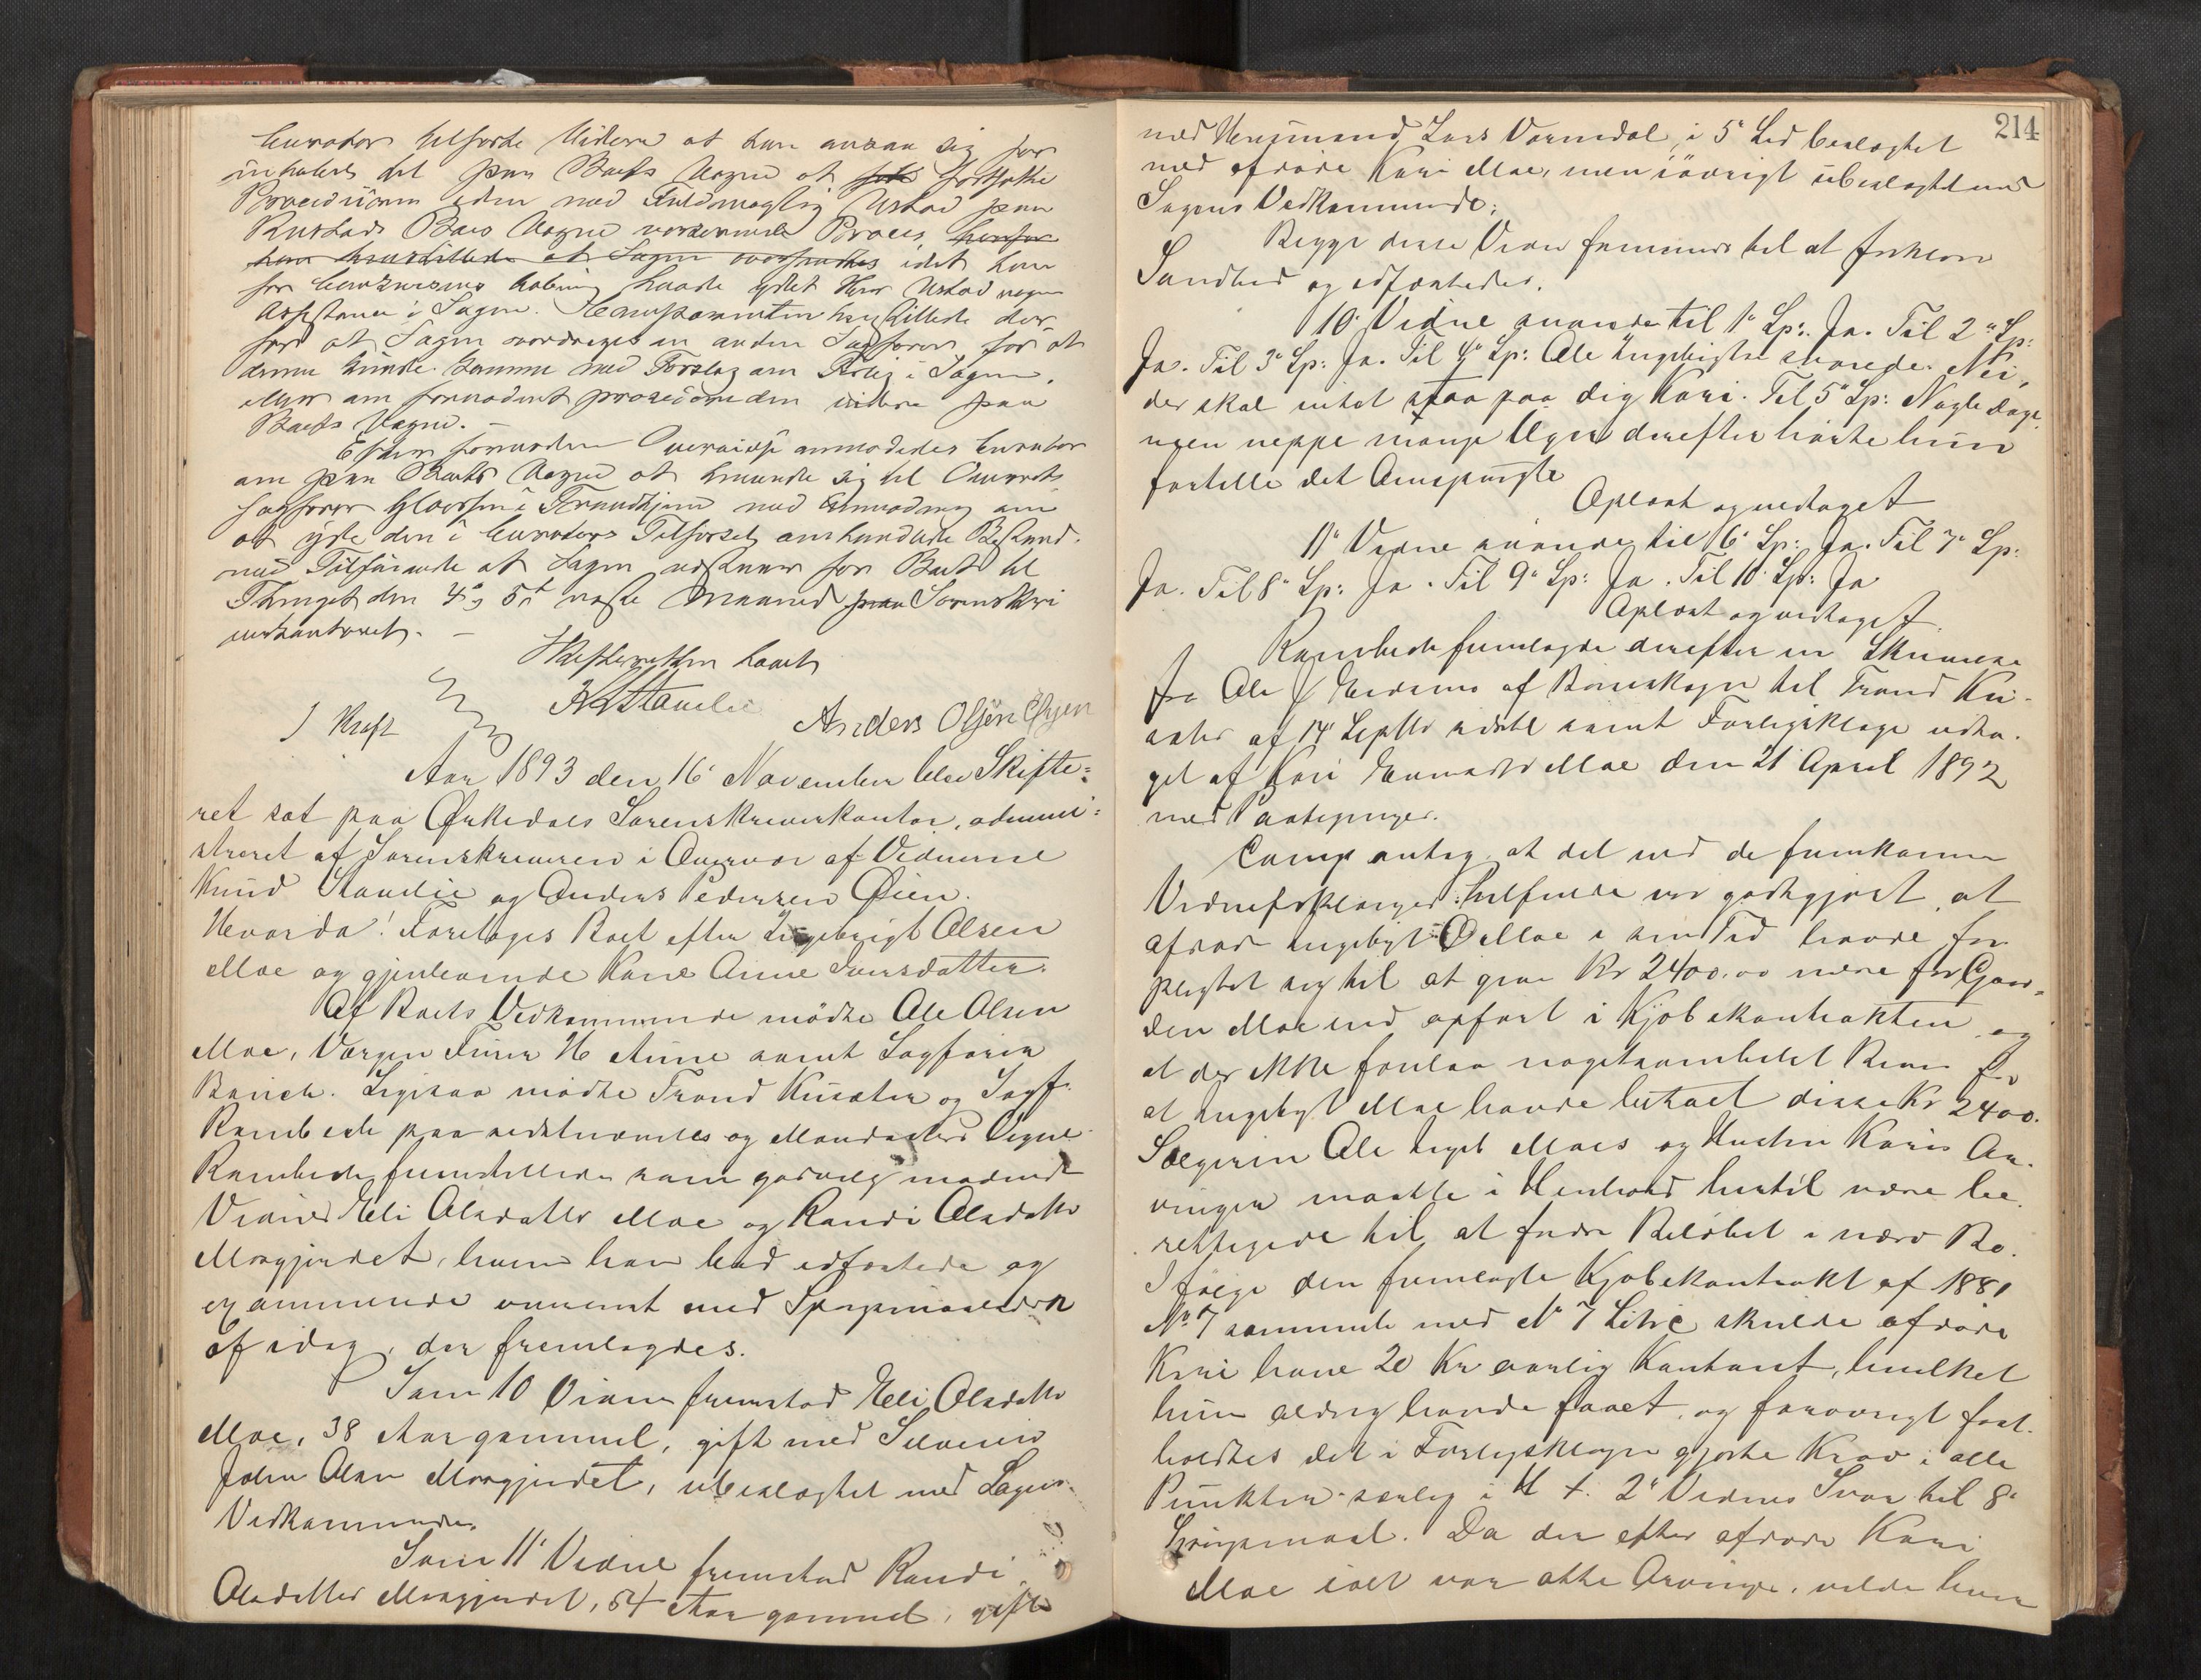 Curator tilførte videre at han ansaa sig for
inhabil til paa Boets Vegne at fortsætte
Proceduren i den med Fuldmægtig Ustad paa
Rustads Boes Vegne verserende Proces, herfor
han henstillede at Sagen overdroges idet han
før Concursens Aabning havde ydet Herr Ustad nogen
Assistance i Sagen. Comparenten henstillede der-
for at Sagen overdroges en anden Sagfører for at
denne kunde komme med Forslag om Forlig i Sagen,
eller om fornødent procedere den videre paa
Boets Vegne. —
Efter foranførte anmodedes Curator
om paa Boets Vegne at henvende sig til Overrets-
sagfører i Trondhjem med Anmodning om
at yde den i Curators Tilførsel omhandlede Bistand
med Tilføiende at Sagen udstaar for Boet til
Thinget den 4 og 5 næste Maaned paa Sorenskri-
verkontoret. —
Skifteretten hævet
K Staulie Anders Olsen Øyen
I Kraft
Aar 1893 den 16 November blev Skifte=
ret sat paa Ørkedals Sorenskriverkontor, admini=
streret af Sorenskriveren i Overvær af Vidnerne
Knud Staulie og Anders Pedersen Øien.
Hvorda! Foretoges Boet efter Ingebrigt Olsen
Moe og gjenlevende Kone Anne Iversdatter.
Af Boets Vedkommende mødte Ole Olsen
Moe, Værgen Einar H Aune samt Sagfører
Bauck. Ligesaa mødte Trond Kusæter og Sagf.
Rambech paa sidstnævntes og Mandanters Vegne.
Rambech fremstillede som godvillig mødende
Vidner Eli Olsdatter Moe og Randi Olsdatter
Moegjerdet, hvem han bad edfæstede og
examinerede overensst med Spørgsmaalene
af idag, der fremlagdes.
Som 10 Vidne fremstod Eli Olsdatter
Moe, 38 Aar gammel, gift med Selveier
John Olsen Moegjerdet, ubeslægtet med Sagens
Vedkommende.
Som 11 Vidne fremstod Randi
Olsdatter Moegjerdet, 54 Aar gammel, gift
214
med Huusmand Lars Vormdal, i 5 Led beslægtet
med afdøde Kari Moe, men iøvrigt ubeslægtet med
Sagens Vedkommende.
Begge disse Vidner formanedes til at forklare
Sandhed og edfæstedes.
10 Vidne svarede til 1 Sp: Ja. Til 2 Sp:
Ja. Til 3 Sp: Ja. Til 4 Sp: Ole Ingebrigtsen svarede Nei,
der skal intet staa paa dig Kari. Til 5 Sp: Nogle Dage
men neppe mange Uger derefter hørte hun
fortælle det Omspurgte
Oplæst og vedtaget
11 Vidne svarede til 6 Sp: Ja. Til 7 Sp:
Ja. Til 8 Sp: Ja. Til 9 Sp: Ja. Til 10 Sp: Ja
Oplæst og vedtaget.
Rambech fremlagde derefter en Skrivelse
fra Ole J af til Trond Ku-
sæter af 14 Septbr sidstl samt Forligsklage udta-
get af Kari Moe den 21 April 1892
med Paategninger.
Comp antog, at det ved de fremkomne
Vidneforklaringer var godtgjort, at
afdøde Ingebrigt O Moe i sin Tid havde for-
pligtet sig til at give Kr 2400.00 mere for Gaar-
den Moe end opført i Kjøbekontrakten, og
at der ikke forelaa nogetsomhelst Bevis for
at Ingebrigt Moe havde betalt disse Kr 2400.
Sælgeren Ole Ingeb Moes og Hustru Karis Ar-
vinger maatte i Henhold hertil være be-
rettigede til at fordre Beløbet i nærv Bo.
Ifølge den fremlagte Kjøbekontrakt af 1881
No 7 sammenh med No 7 Litr c skulde afdøde
Kari have 20 Kr aarlig Kontant, hvilket
hun aldrig havde faaet, og forøvrigt fast-
holdtes det i Forligsklagen gjorte Krav i alle
Punkter særlig i H t. 2 Vidnes Svar til 8
Spørgsmaal. Da der efter afdøde Kari
Moe ialt var otte Arvinge, vilde hver